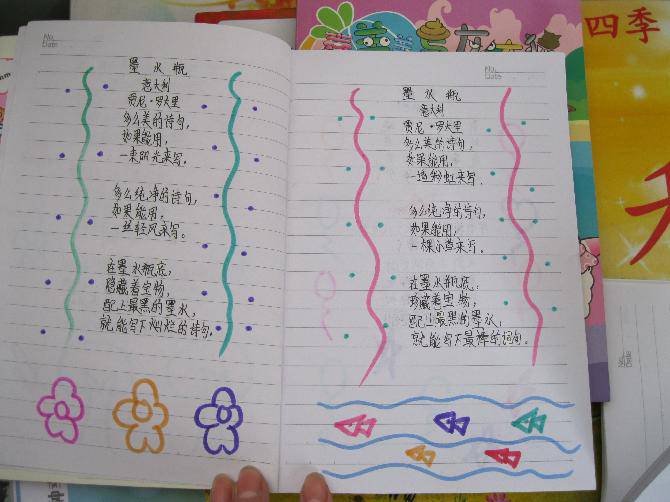 墨水瓶
意大利
贾尼·罗大里
多么美的诗句，
如果能用，
一束阳光来写。
多么纯净的诗句，
如果能用，
一丝轻风来写。
在墨水瓶底，
隐藏着宝物，
配上最黑的墨水，
就能写下灿烂的诗句。
No.
Date
墨水瓶
意大利
贾尼·罗大里
多么美的诗句，
如果能用，
一道彩虹来写。
多么纯净的诗句，
如果能用，
一棵小草来写。
在墨水瓶底，
珍藏着宝物，
配上最黑的墨水，
就能写下最棒的词句。
No.
Date
四季